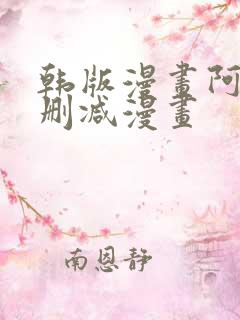 韩版漫畫阿
删减漫畫
南恩静